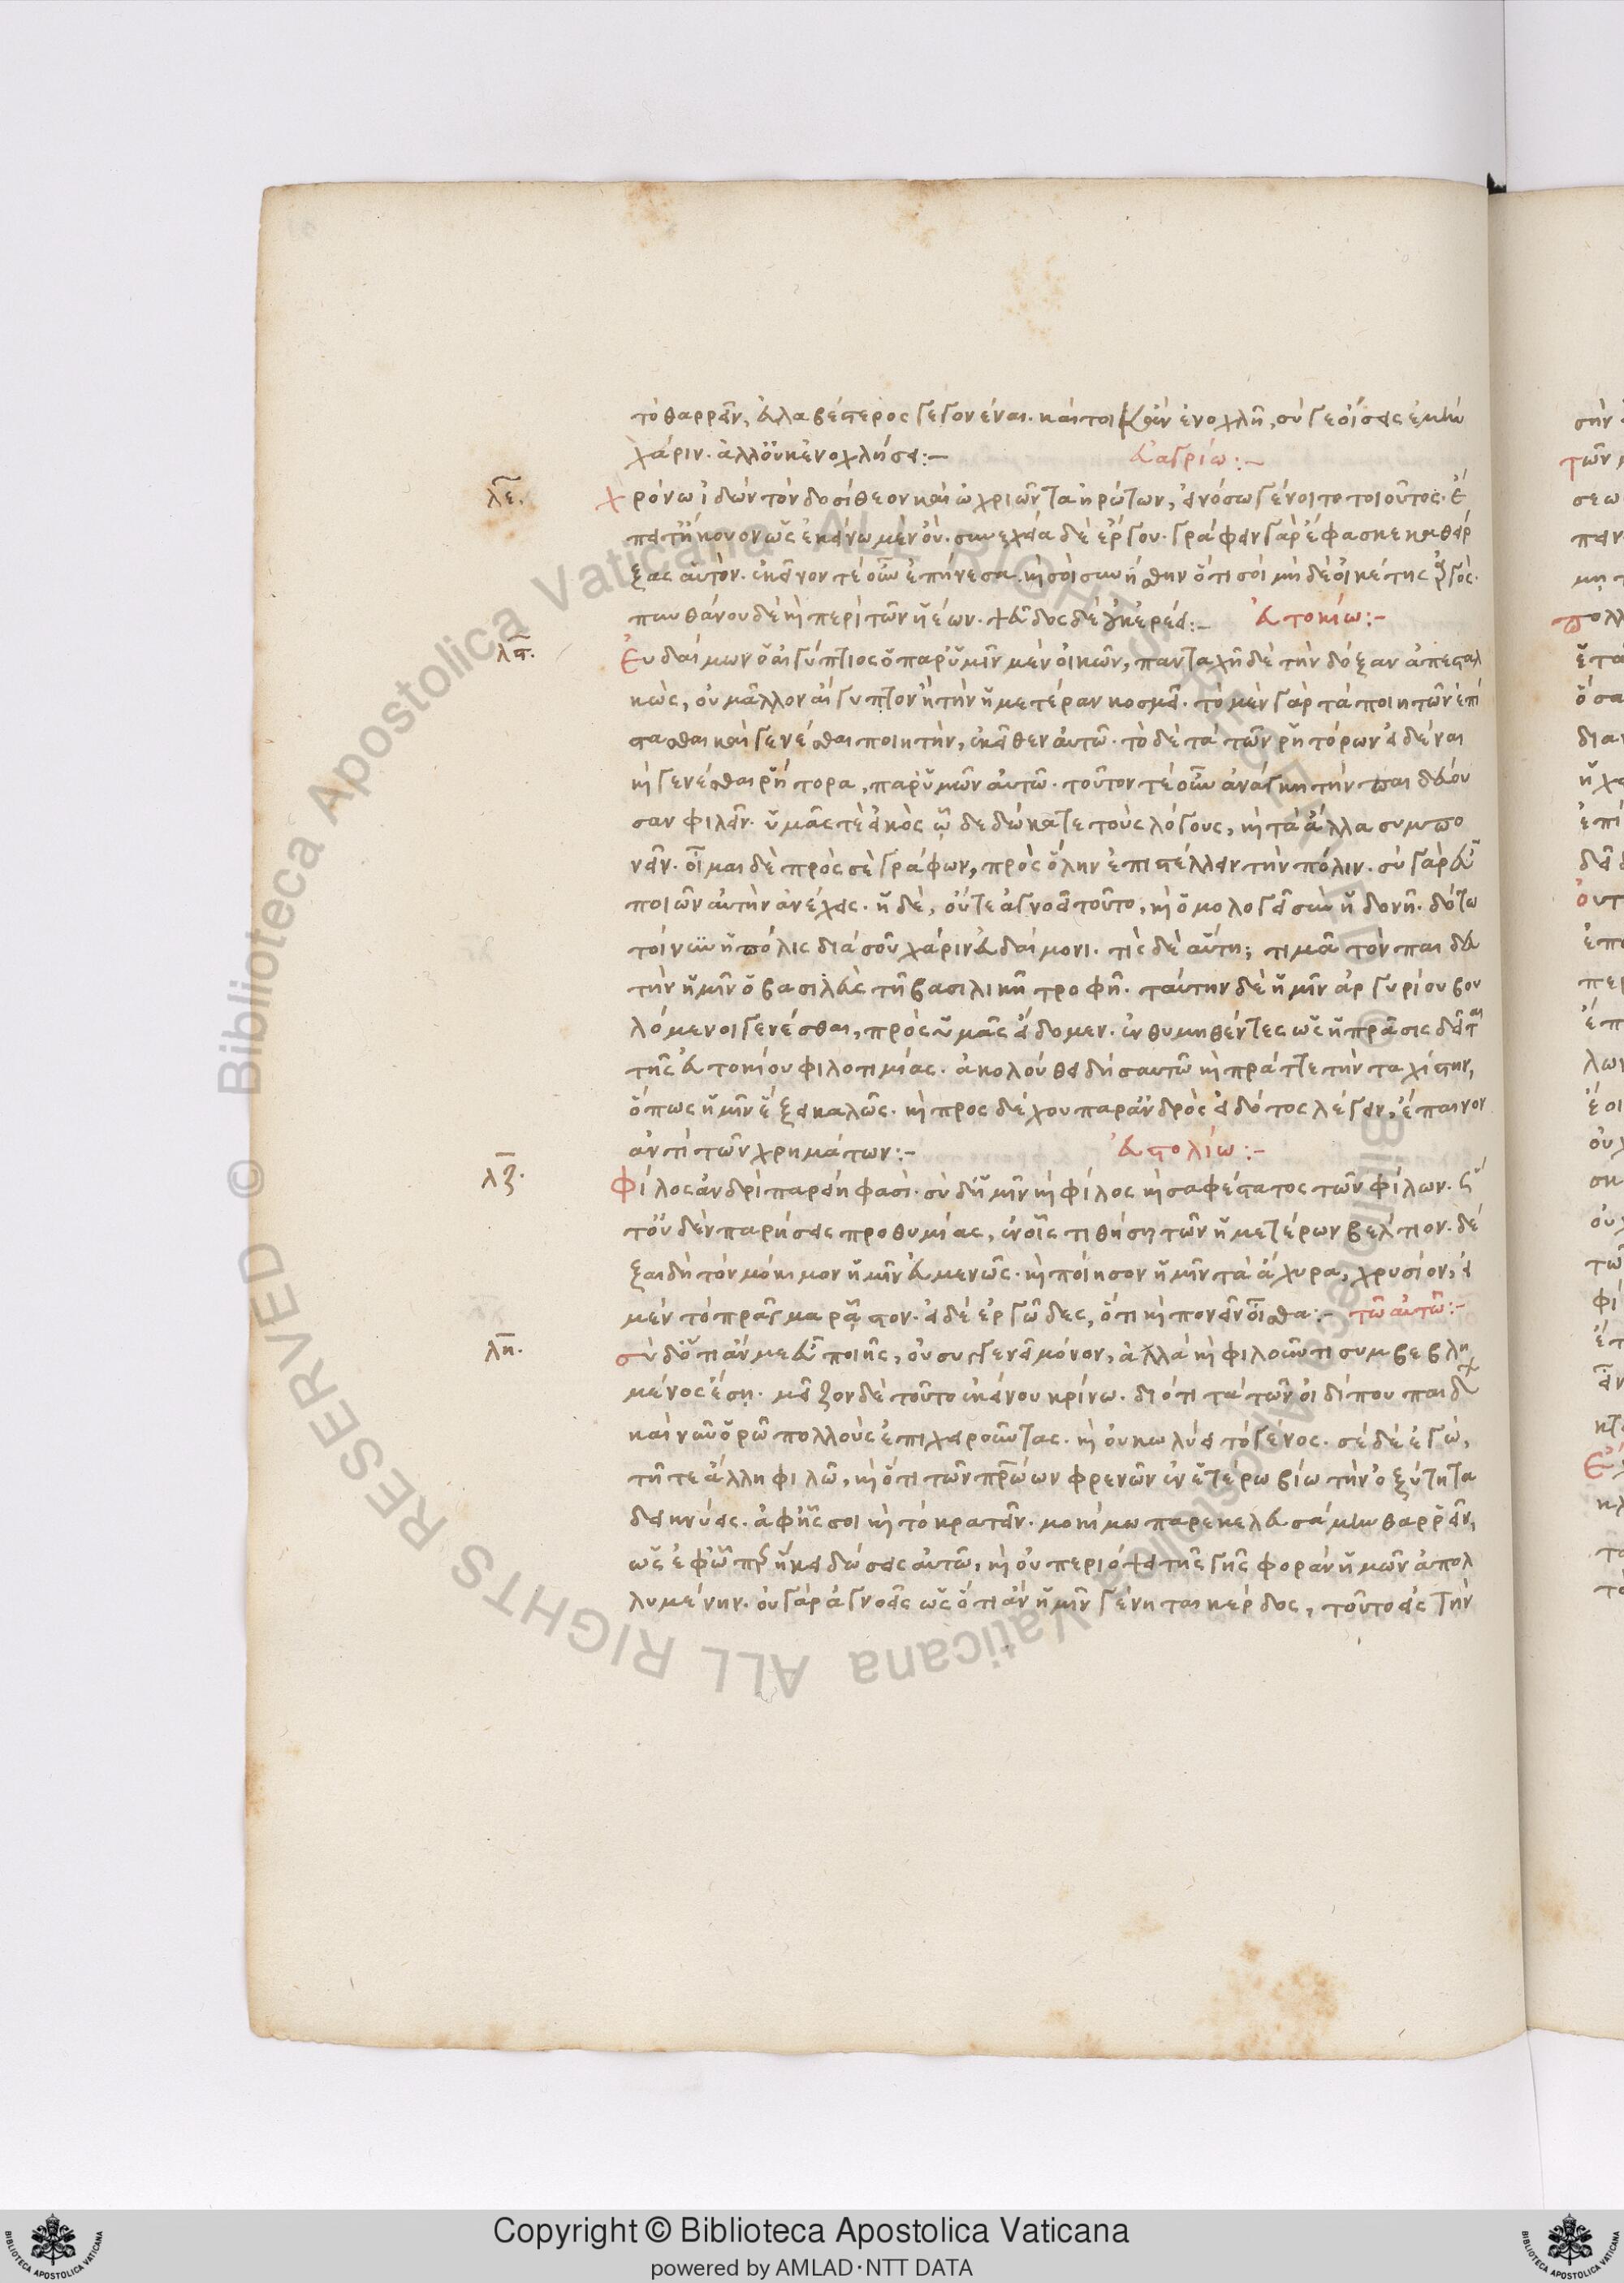 τὸ θαρρεῖν, εὐλαβέστερος γεγονέναι. καίτοι κἂν ἐνοχλῇ, σύ γε οἴσεις ἐμὴν
χάριν. ἀλλ' οὐκ ἐνοχλήσει:–
Εὐαγρίω:–
λε.
Χρόνω ἰδὼν τὸν δοσίθεον καὶ ὠχριῶντα ἠρώτων, εἰ νόσω γένοιτο τοιοῦτος. ἔ
πειτ' ἤκουον ὡς ἐκείνω μὲν οὔ. συνεχεία δὲ ἔργου. γράφειν γὰρ ἔφασκε καθείρ
ξας αὐτόν. ἐκεῖνόν τε οὖν ἐπήνεσα. καὶ σοὶ συνήσθην ὅτι σοὶ μὴ δὲ οἰκέτης ἀργός.
πυνθάνου δὲ καὶ περὶ τῶν νέων. ψεῦδος δὲ οὐκ ἐρεῖ:–
Εὐτοκίω:–
λϛ.
Εὐδαίμων ὁ αἰγύπτιος ὁ παρ' ὑμῖν μὲν οἰκῶν, πανταχῆ δὲ τὴν δόξαν ἀπεσταλ
κὼς, οὐ μᾶλλον αἴγυπτον ἢ τὴν ἡμετέραν κοσμεῖ. τὸ μὲν γὰρ τὰ ποιητῶν ἐπί
στασθαι καὶ γενέσθαι ποιητὴν, ἐκεῖθεν αὐτῶ. τὸ δὲ τὰ τῶν ῥητόρων εἰδέναι
καὶ γενέσθαι ῥήτορα, παρ' ὑμῶν αὐτῶ. τοῦτόν τε οὖν ἀνάγκη τὴν παιδεύου
σαν φιλεῖν. ὑμᾶς τὲ εἰκὸς ᾧ δεδώκατε τοὺς λόγους, καὶ τὰ ἄλλα συμπο
νεῖν. οἶμαι δὲ πρὸς σὲ γράφων, πρὸς ὅλην ἐπιστέλλειν τὴν πόλιν. σὺ γὰρ εὖ
ποιῶν αὐτὴν ἀνέχεις. ἡ δὲ, οὔτε ἀγνοεῖ τοῦτο, καὶ ὁμολογεῖ σὺν ἡδονῇ. δότω
τοίνυν ἡ πόλις διὰ σοῦ χάριν εὐδαίμονι. τίς δὲ αὕτη; τιμᾶ τὸν παιδευ
τὴν ἡμῖν ὁ βασιλεὺς τῇ βασιλικῇ τροφῇ. ταύτην δὲ ἡμῖν ἀργυρίου βου
λόμενοι γενέσθαι, πρὸς ὑμᾶς εἴδομεν. ἐνθυμηθέντες ὡς ἡ πρᾶσις δεῖται
τῆς εὐτοκίου φιλοτιμίας. ἀκολούθει δὴ σαυτῶ καὶ πρᾶττε τὴν ταχίστην,
ὅπως ἡμῖν ἕξει καλῶς. καὶ προσδέχου παρ' ἀνδρὸς εἰδότος λέγειν, ἔπαινον
ἀντὶ τῶν χρημάτων:–
Εὐστολίω:–
λζ.
Φίλος ἀνδρὶ παρείη φασί. σὺ δ' ἡμῖν καὶ φίλος καὶ σαφέστατος τῶν φίλων. ὥσ
τ' οὐδὲν παρήσεις προθυμίας, ἐν οἷς τιθήση τῶν ἡμετέρων βέλτιον. δέ
ξαι δὴ τὸν μόκιμον ἡμῖν εὐμενῶς. καὶ ποίησον ἡμῖν τὰ ἄχυρα, χρυσίον, εἰ
μὲν τὸ πρᾶγμα ῥᾷστον. εἰ δὲ ἐργῶδες, ὅτι καὶ πονεῖν οἶσθα:– τῶ αὐτῶ:–
λη.
σὺ δ' ὅτι ἄν με εὖ ποιῇς, οὐ συγγενεῖ μόνον, ἀλλὰ καὶ φιλοῦντι συμβεβλη
μένος ἔσῃ. μεῖζον δὲ τοῦτο ἐκείνου κρίνω. διότι τὰ τῶν οἰδίπου παίδων
καὶ νῦν ὁρῶ πολλοὺς ἐπιχειροῦντας. καὶ οὐ κωλύει τὸ γένος. σὲ δὲ ἐγώ,
τῇ τε ἄλλη φιλῶ, καὶ ὅτι τῶν πρώων φρενῶν ἐν ἑτέρω βίω τὴν ὀξύτητα
δεικνύεις. ἀφῆς σοι καὶ τὸ κρατεῖν. μοκίμω παρεκελευσάμην θαρρεῖν,
ὡς ἐφ' ᾧπερ ἥκει δώσεις αὐτῶ, καὶ οὐ περιόψει τῆς γῆς φορὰν ἡμῶν ἀπολ
λυμένην. οὐ γὰρ ἀγνοεῖς ὡς ὅτι ἂν ἡμῖν γένηται κέρδος, τοῦτο εἰς τὴν
© Biblioteca Apostolica Vaticana ALL RIGHTS RESERVED
Copyright © Biblioteca Apostolica Vaticana
powered by AMLAD·NTT DATA
BIBLIOTECA APOSTOLICA VATICANA
BIBLIOTECA APOSTOLICA VATICANA